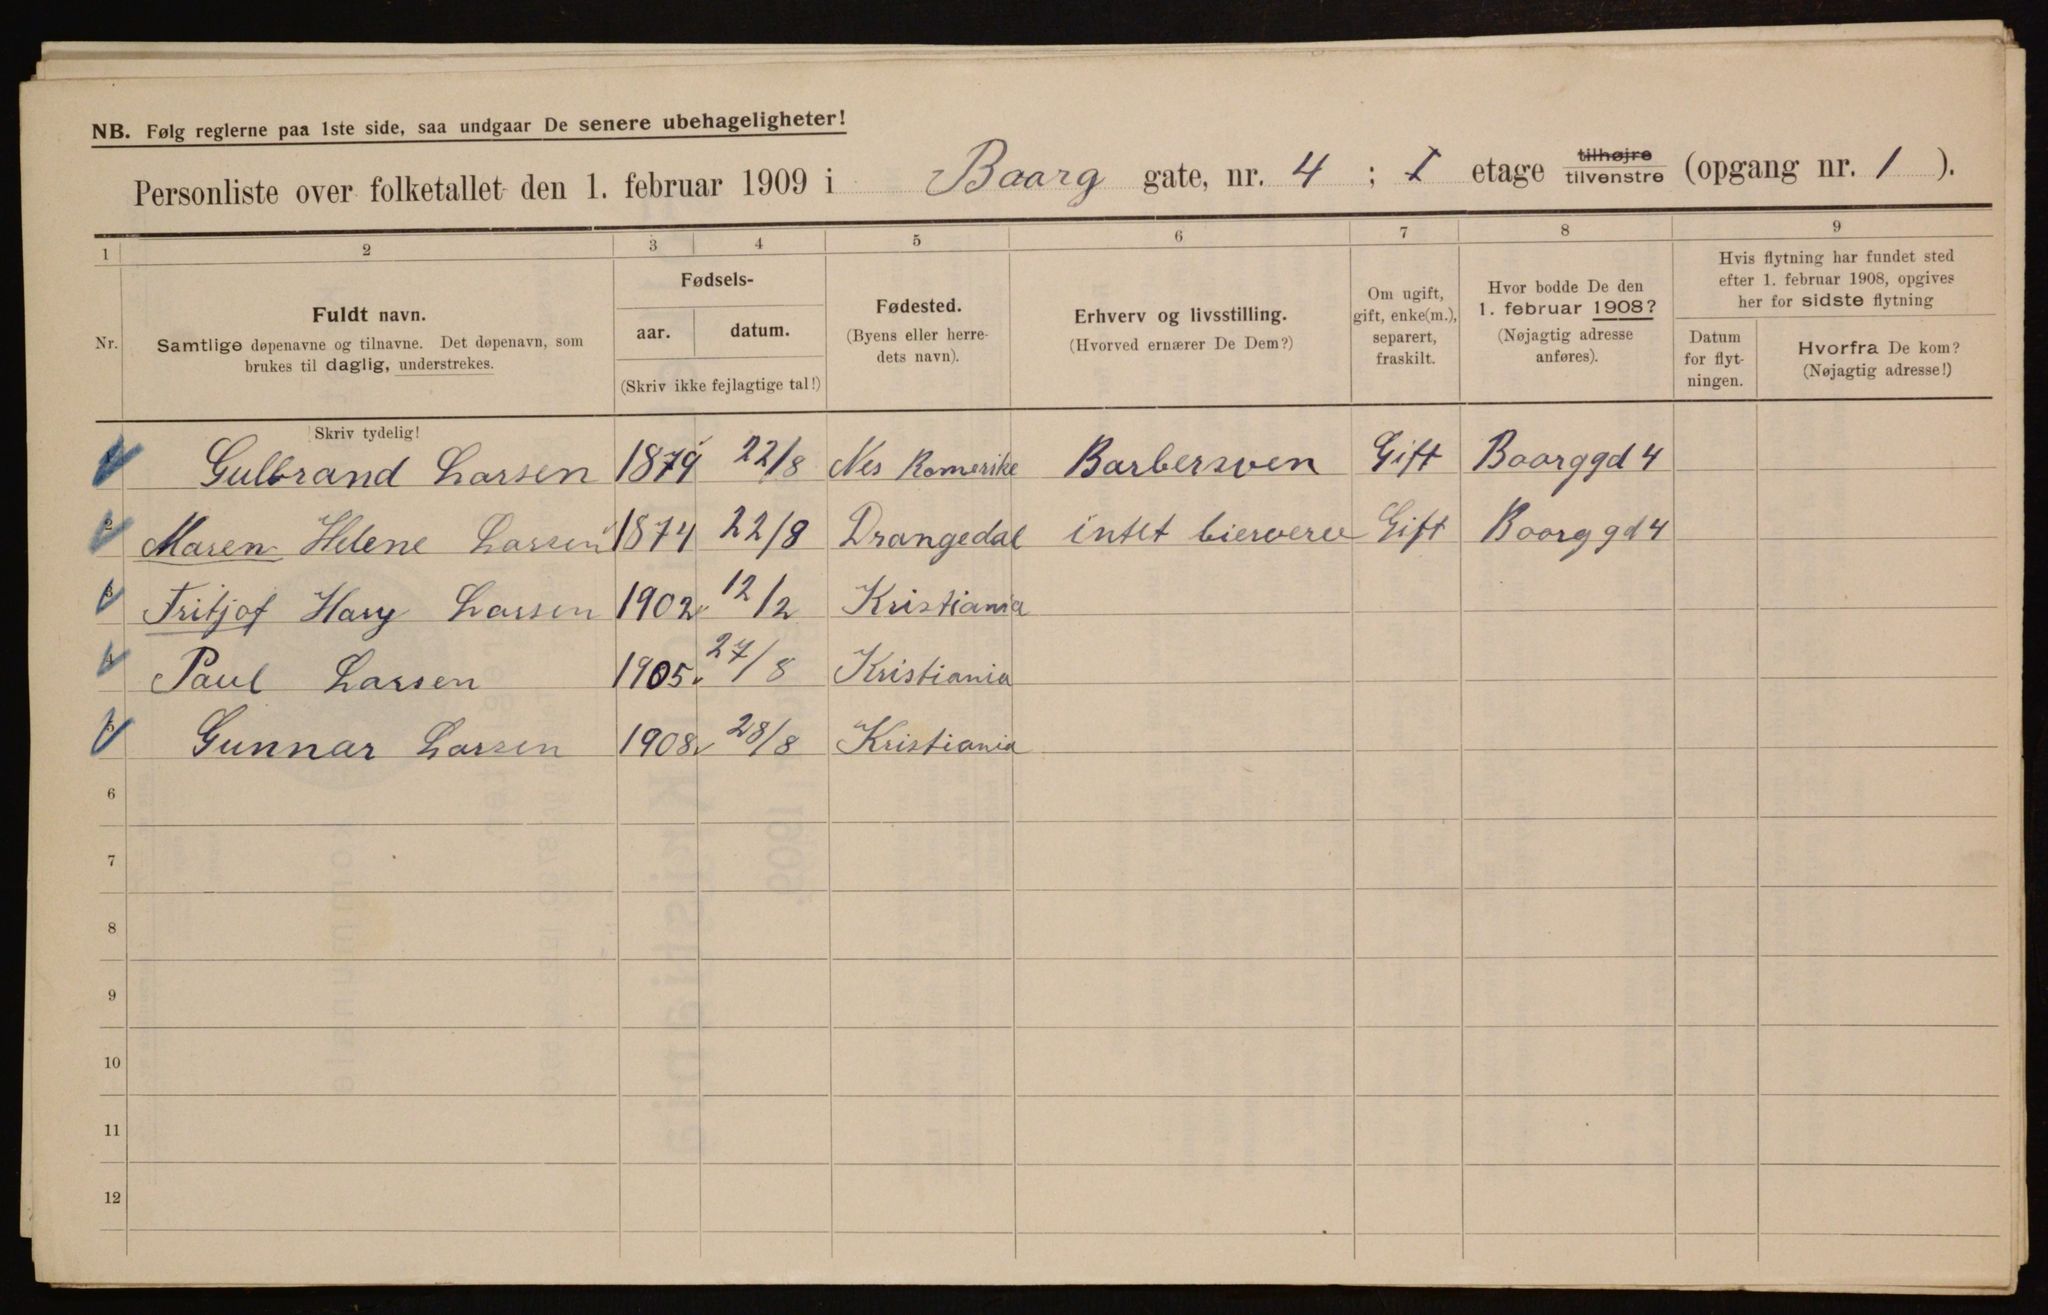 NB. Følg reglerne paa 1ste side, saa undgaar De senere ubehageligheter!
Personliste over folketallet den 1. februar 1909 i Baarg gate, nr. 4 ; I etage tilhøjre tilvenstre (opgang nr. 1 ).
1 2 3 4 5 6 7 8 9
Nr.
Fuldt navn.
Samtlige døpenavne og tilnavne. Det døpenavn, som
brukes til daglig, understrekes.
Fødsels-
aar. datum.
(Skriv ikke fejlagtige tal!)
Fødested.
(Byens eller herre-
dets navn).
Erhverv og livsstilling.
(Hvorved ernærer De Dem?)
Om ugift,
gift, enke(m.),
separert,
fraskilt.
Hvor bodde De den
1. februar 1908?
(Nøjagtig adresse
anføres).
Hvis flytning har fundet sted
efter 1. februar 1908, opgives
her for sidste flytning
Datum
for flyt-
ningen.
Hvorfra De kom?
(Nøjagtig adresse!)
Skriv tydelig!
Gulbrand Larsen 1879 22/8 Nes Romerike Barbersven Gift Baarggd 4
2 Maren Helene Larsen 1874 22/8 Drangedal intet bierverv Gift Baarggd 4
3 Fritjof Hary Larsen 1902 12/2 Kristiania
4 Paul Larsen 1905 27/8 Kristiania
Gunnar Larsen 1908 28/8 Kristiania
6
7
8
9
10
11
12